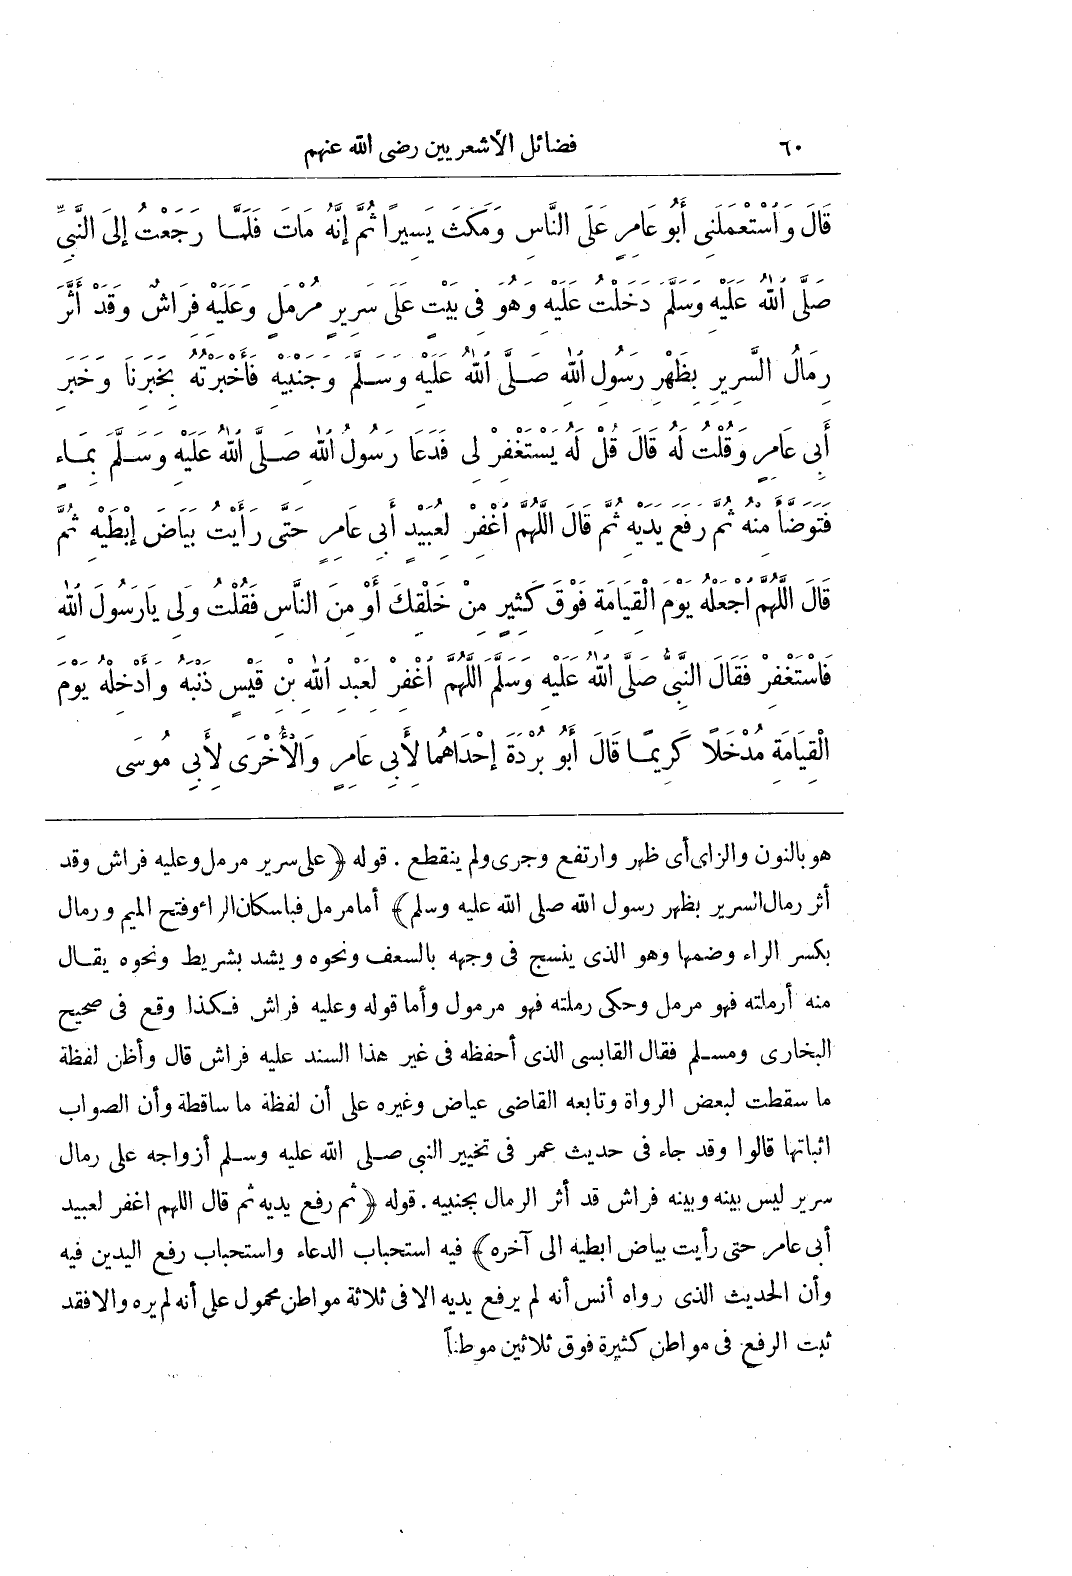 ٦٠ فضائل الأشعريين رضى الله عنهم
قَالَ وَاسْتَعْمَلَنِى أَبُو عَامِرٍ عَلَى النَّاسِ وَمَكَثَ يَسِيرًا ثُمَّ إِنَّهُ مَاتَ فَلَمَّا رَجَعْتُ إِلَى النَّبِىِّ
صَلَّى اللهُ عَلَيْهِ وَسَلَّمَ دَخَلْتُ عَلَيْهِ وَهُوَ فِى بَيْتٍ عَلَى سَرِيرٍ مُرْمَلٍ وَعَلَيْهِ فِرَاشٌ وَقَدْ أَثَّرَ
رِمَالُ السَّرِيرِ بِظَهْرِ رَسُولِ اللهِ صَلَّى اللهُ عَلَيْهِ وَسَلَّمَ وَجَنْبَيْهِ فَأَخْبَرْتُهُ بِخَبَرِنَا وَخَبَرِ
أَبِى عَامِرٍ وَقُلْتُ لَهُ قَالَ قُلْ لَهُ يَسْتَغْفِرْ لِى فَدَعَا رَسُولُ اللهِ صَلَّى اللهُ عَلَيْهِ وَسَلَّمَ بِمَاءٍ
فَتَوَضَّأَ مِنْهُ ثُمَّ رَفَعَ يَدَيْهِ ثُمَّ قَالَ اللَّهُمَّ اغْفِرْ لِعُبَيْدٍ أَبِى عَامِرٍ حَتَّى رَأَيْتُ بَيَاضَ إِبْطَيْهِ ثُمَّ
قَالَ اللَّهُمَّ اجْعَلْهُ يَوْمَ الْقِيَامَةِ فَوْقَ كَثِيرٍ مِنْ خَلْقِكَ أَوْ مِنَ النَّاسِ فَقُلْتُ وَلِى يَارَسُولَ اللهِ
فَاسْتَغْفِرْ فَقَالَ النَّبِىُّ صَلَّى اللهُ عَلَيْهِ وَسَلَّمَ اللَّهُمَّ اغْفِرْ لِعَبْدِ اللهِ بْنِ قَيْسٍ ذَنْبَهُ وَأَدْخِلْهُ يَوْمَ
الْقِيَامَةِ مُدْخَلًا كَرِيمًا قَالَ أَبُو بُرْدَةَ إِحْدَاهُمَا لِأَبِى عَامِرٍ وَالْأُخْرَى لِأَبِى مُوسَى
هو بالنون والزاى أى ظهر وارتفع وجرى ولم ينقطع . قوله ﴿على سرير مرمل وعليه فراش وقد
أثر رمال السرير بظهر رسول الله صلى الله عليه وسلم﴾ أما مرمل فباسكان الراء وفتح الميم ورمال
بكسر الراء وضمها وهو الذى ينسج فى وجهه بالسعف ونحوه ويشد بشريط ونحوه يقال
منه أرملته فهو مرمل وحكى رملته فهو مرمول وأما قوله وعليه فراش فكذا وقع فى صحيح
البخارى ومسلم فقال القابسى الذى أحفظه فى غير هذا السند عليه فراش قال وأظن لفظة
ما سقطت لبعض الرواة وتابعه القاضى عياض وغيره على أن لفظة ما ساقطة وأن الصواب
اثباتها قالوا وقد جاء فى حديث عمر فى تخيير النبى صلى الله عليه وسلم أزواجه على رمال
سرير ليس بينه وبينه فراش قد أثر الرمال بجنبيه . قوله ﴿ثم رفع يديه ثم قال اللهم اغفر لعبيد
أبى عامر حتى رأيت بياض ابطيه الى آخره﴾ فيه استحباب الدعاء واستحباب رفع اليدين فيه
وأن الحديث الذى رواه أنس أنه لم يرفع يديه الا فى ثلاثة مواطن محمول على أنه لم يره والا فقد
ثبت الرفع فى مواطن كثيرة فوق ثلاثين موطناً